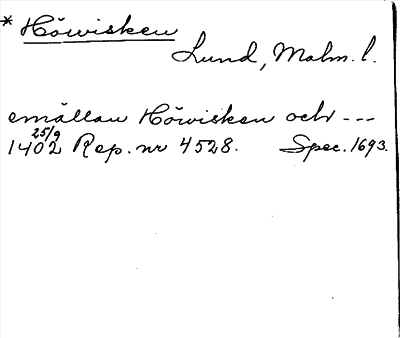 * Höwisken
Lund, Malm. l.
emällan Höwisken och ---
25/9
1402 Rep. nr 4528. Spec. 1693.